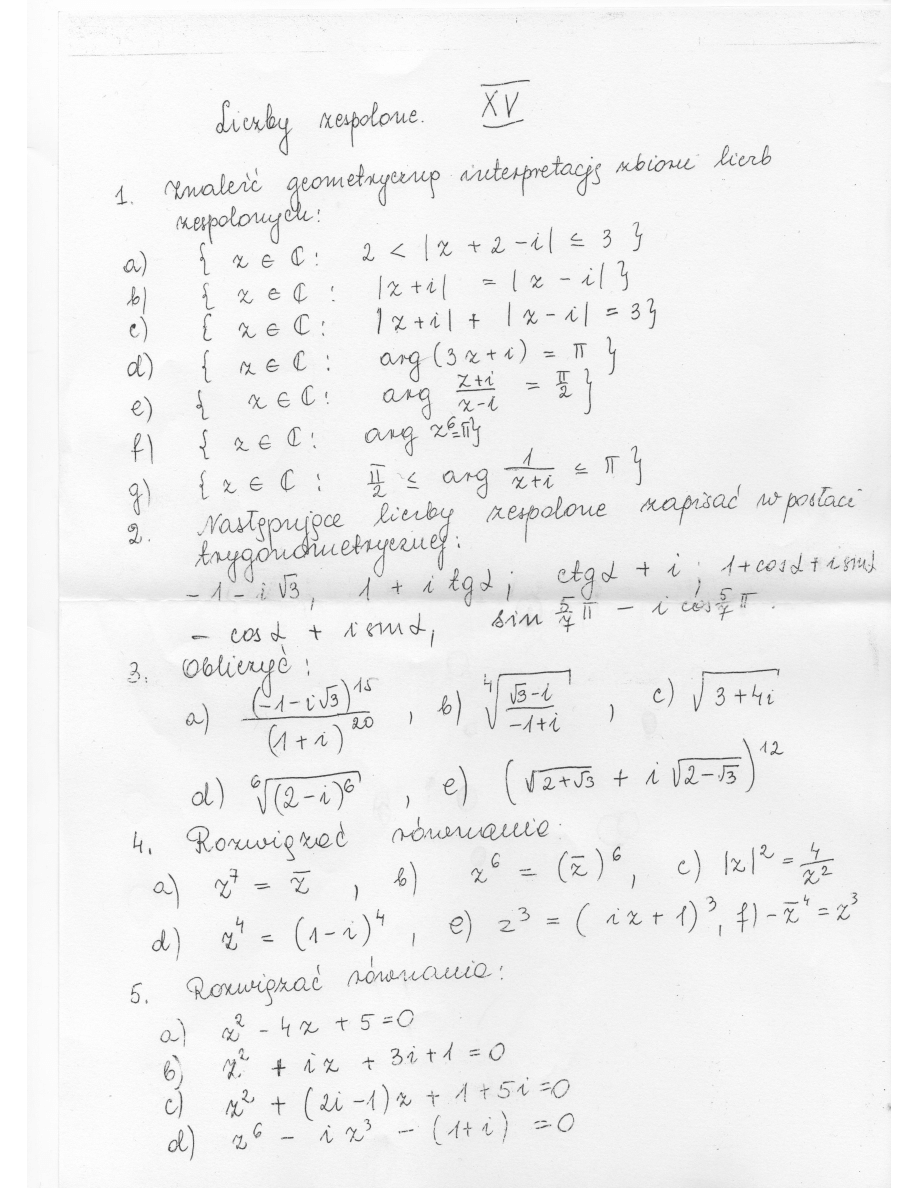 Liczby zespolone. XV
1. Znaleźć geometryczną interpretację zbioru liczb
zespolonych:
a) { z ∈ ℂ : 2 < |z + 2 - i| ≤ 3 }
b) { z ∈ ℂ : |z+i| = |z - i| }
c) { z ∈ ℂ : |z+i| + |z-i| = 3}
d) { z ∈ ℂ : arg(3z+i) = π }
e) { z ∈ ℂ : arg \frac{z+i}{z-i} = \frac{π}{2} }
f) { z ∈ ℂ : arg z^6 = π}
g) { z ∈ ℂ : \frac{π}{2} ≤ arg \frac{1}{z+i} ≤ π }
2. Następujące liczby zespolone zapisać w postaci
trygonometrycznej:
-1-i√3, 1 + i tgα ; ctgα + i ; 1+cosα + i sinα
- cosα + i sinα, sin \frac{5}{7}π - i cos \frac{5}{7}π.
3. Obliczyć:
a) \frac{(-1-i√3)^{15}}{(1+i)^{20}} , b) \sqrt[4]{\frac{√3-i}{-1+i}} , c) \sqrt{3+4i}
d) \sqrt[6]{(2-i)^6} , e) (\sqrt{2+√3} + i \sqrt{2-√3})^{12}
4. Rozwiązać równanie.
a) z^7 = \bar{z} , b) z^6 = (\bar{z})^6, c) |z|^2 = \frac{4}{z^2}
d) z^4 = (1-i)^4 , e) z^3 = (iz+1)^3, f) -\bar{z}^4 = z^3
5. Rozwiązać równania:
a) z^2 - 4z + 5 = 0
b) z^2 + iz + 3i + 1 = 0
c) z^2 + (2i-1)z + 1 + 5i = 0
d) z^6 - iz^3 - (1+i) = 0